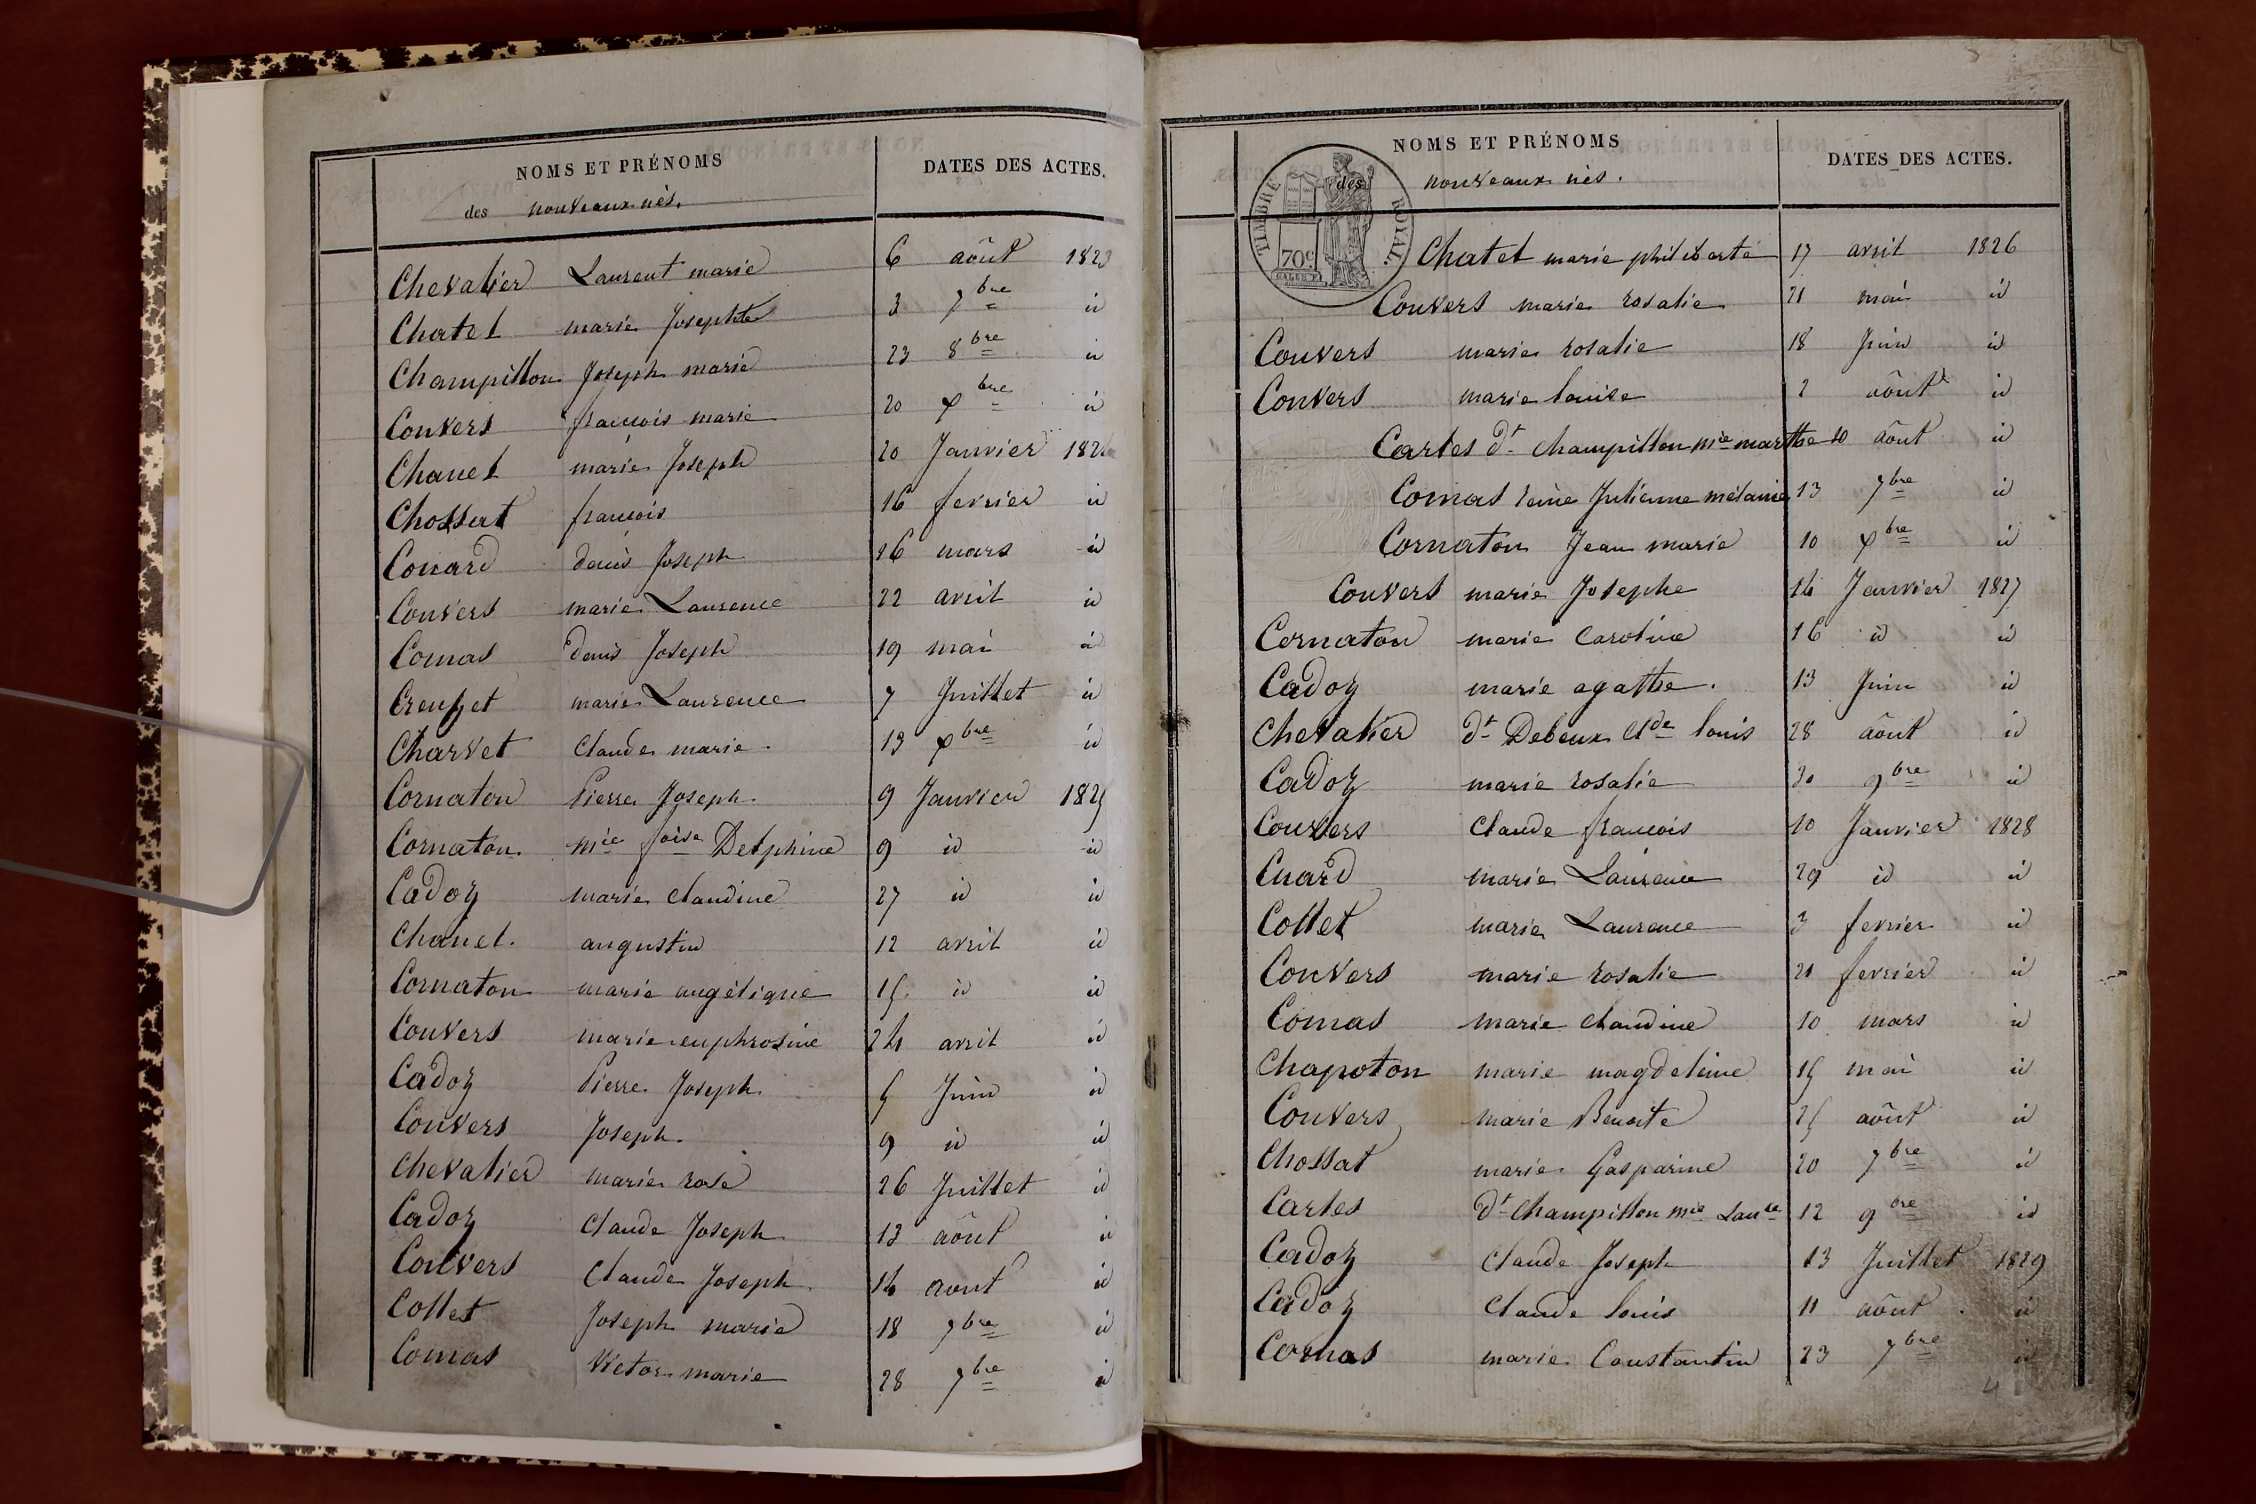 NOMS ET PRÉNOMS DATES DES ACTES.
des nouveaux nés.
Chevalier Laurent marie 6 août 1823
Chatel marie Josephte 3 7bre id
Champillon Joseph marie 23 8bre id
Convers françois marie 20 xbre id
Chanel marie Joseph 20 Janvier 182
Chossat françois 16 fevrier id
Conard denis Joseph 16 mars id
Convers marie Laurence 22 avril id
Comas denis Joseph 19 mai id
Creuzet marie Laurence 7 Juillet id
Charvet Claude marie 13 xbre id
Cornaton Pierre Joseph 9 Janvier 1825
Cornaton mie foise Delphine 9 id id
Cadoz marie claudine 27 id id
Chanel augustin 12 avril id
Cornaton marie angélique 15 id id
Convers marie euphrosine 24 avril id
Cadoz Pierre Joseph 5 Juin id
Convers Joseph 9 id id
Chevalier marie rose 26 Juillet id
Cadoz Claude Joseph 13 août id
Convers Claude Joseph 14 aout id
Collet Joseph marie 18 7bre id
Comas Victor marie 28 7bre id
NOMS ET PRÉNOMS DATES DES ACTES.
des nouveaux nés.
TIMBRE ROYAL
70c
Chatel marie philiberte 17 avril 1826
Convers marie rosalie 21 mai id
Convers marie rosalie 18 Juin id
Convers marie louise 2 août id
Cartes dt Champillon mie marthe 10 août id
Comas reine Julienne mélanie 13 7bre id
Cornaton Jean marie 10 xbre id
Convers marie Josephe 14 Janvier 1827
Cornaton marie Caroline 16 id id
Cadoz marie agathe. 13 Juin id
Chevalier dt Debeux Clde louis 28 août id
Cadoz marie rosalie 30 9bre id
Convers Claude françois 10 Janvier 1828
Cuard marie Laurence 29 id id
Collet marie Laurence 3 fevrier id
Convers marie rosalie 21 fevrier id
Comas marie claudine 10 mars id
Chapoton marie magdeleine 15 mai id
Convers marie Benoite 25 août id
Chossat marie Gasparine 20 7bre id
Cartes dt Champillon mie Lauce 12 9bre id
Cadoz Claude Joseph 13 Juillet 1829
Cadoz Claude louis 11 août id
Comas marie Constantin 23 7bre id
4